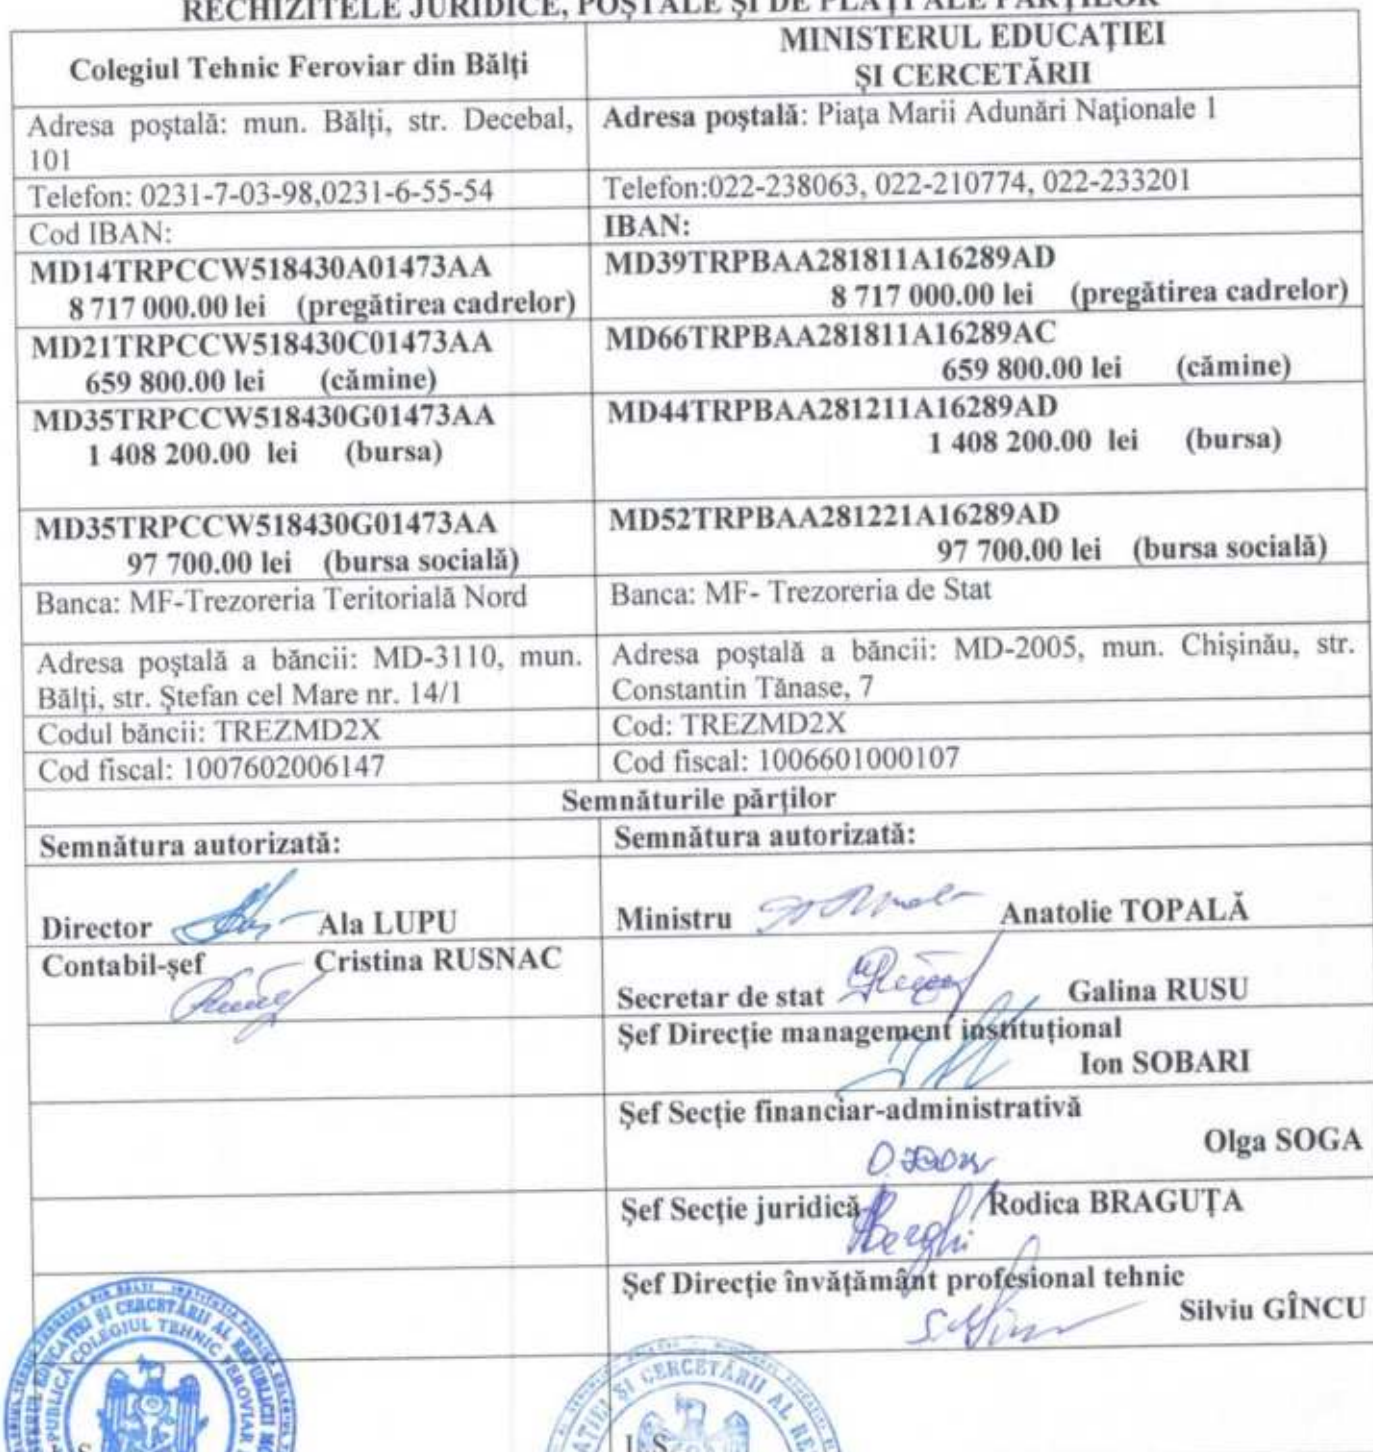 RECHIZITELE JURIDICE, POȘTALE ȘI DE PLĂȚI ALE PĂRȚILOR
Colegiul Tehnic Feroviar din Bălți
MINISTERUL EDUCAȚIEI
ȘI CERCETĂRII
Adresa poștală: mun. Bălți, str. Decebal,
101
Adresa poștală: Piața Marii Adunări Naționale 1
Telefon: 0231-7-03-98,0231-6-55-54
Telefon:022-238063, 022-210774, 022-233201
Cod IBAN:
IBAN:
MD14TRPCCW518430A01473AA
8 717 000.00 lei (pregătirea cadrelor)
MD39TRPBAA281811A16289AD
8 717 000.00 lei (pregătirea cadrelor)
MD21TRPCCW518430C01473AA
659 800.00 lei (cămine)
MD66TRPBAA281811A16289AC
659 800.00 lei (cămine)
MD35TRPCCW518430G01473AA
1 408 200.00 lei (bursa)
MD44TRPBAA281211A16289AD
1 408 200.00 lei (bursa)
MD35TRPCCW518430G01473AA
97 700.00 lei (bursa socială)
MD52TRPBAA281221A16289AD
97 700.00 lei (bursa socială)
Banca: MF-Trezoreria Teritorială Nord
Banca: MF- Trezoreria de Stat
Adresa poștală a băncii: MD-3110, mun.
Bălți, str. Ștefan cel Mare nr. 14/1
Adresa poștală a băncii: MD-2005, mun. Chișinău, str.
Constantin Tănase, 7
Codul băncii: TREZMD2X
Cod: TREZMD2X
Cod fiscal: 1007602006147
Cod fiscal: 1006601000107
Semnăturile părților
Semnătura autorizată:
Semnătura autorizată:
Director Ala LUPU
Ministru Anatolie TOPALĂ
Contabil-șef Cristina RUSNAC
Secretar de stat Galina RUSU
Șef Direcție management instituțional
Ion SOBARI
Șef Secție financiar-administrativă
Olga SOGA
Șef Secție juridică Rodica BRAGUȚA
Șef Direcție învățământ profesional tehnic
Silviu GÎNCU
ȘI CERCETĂRII AL REPUBLICII
COLEGIUL TEHNIC FEROVIAR
ȘI CERCETĂRII AL
L.S.